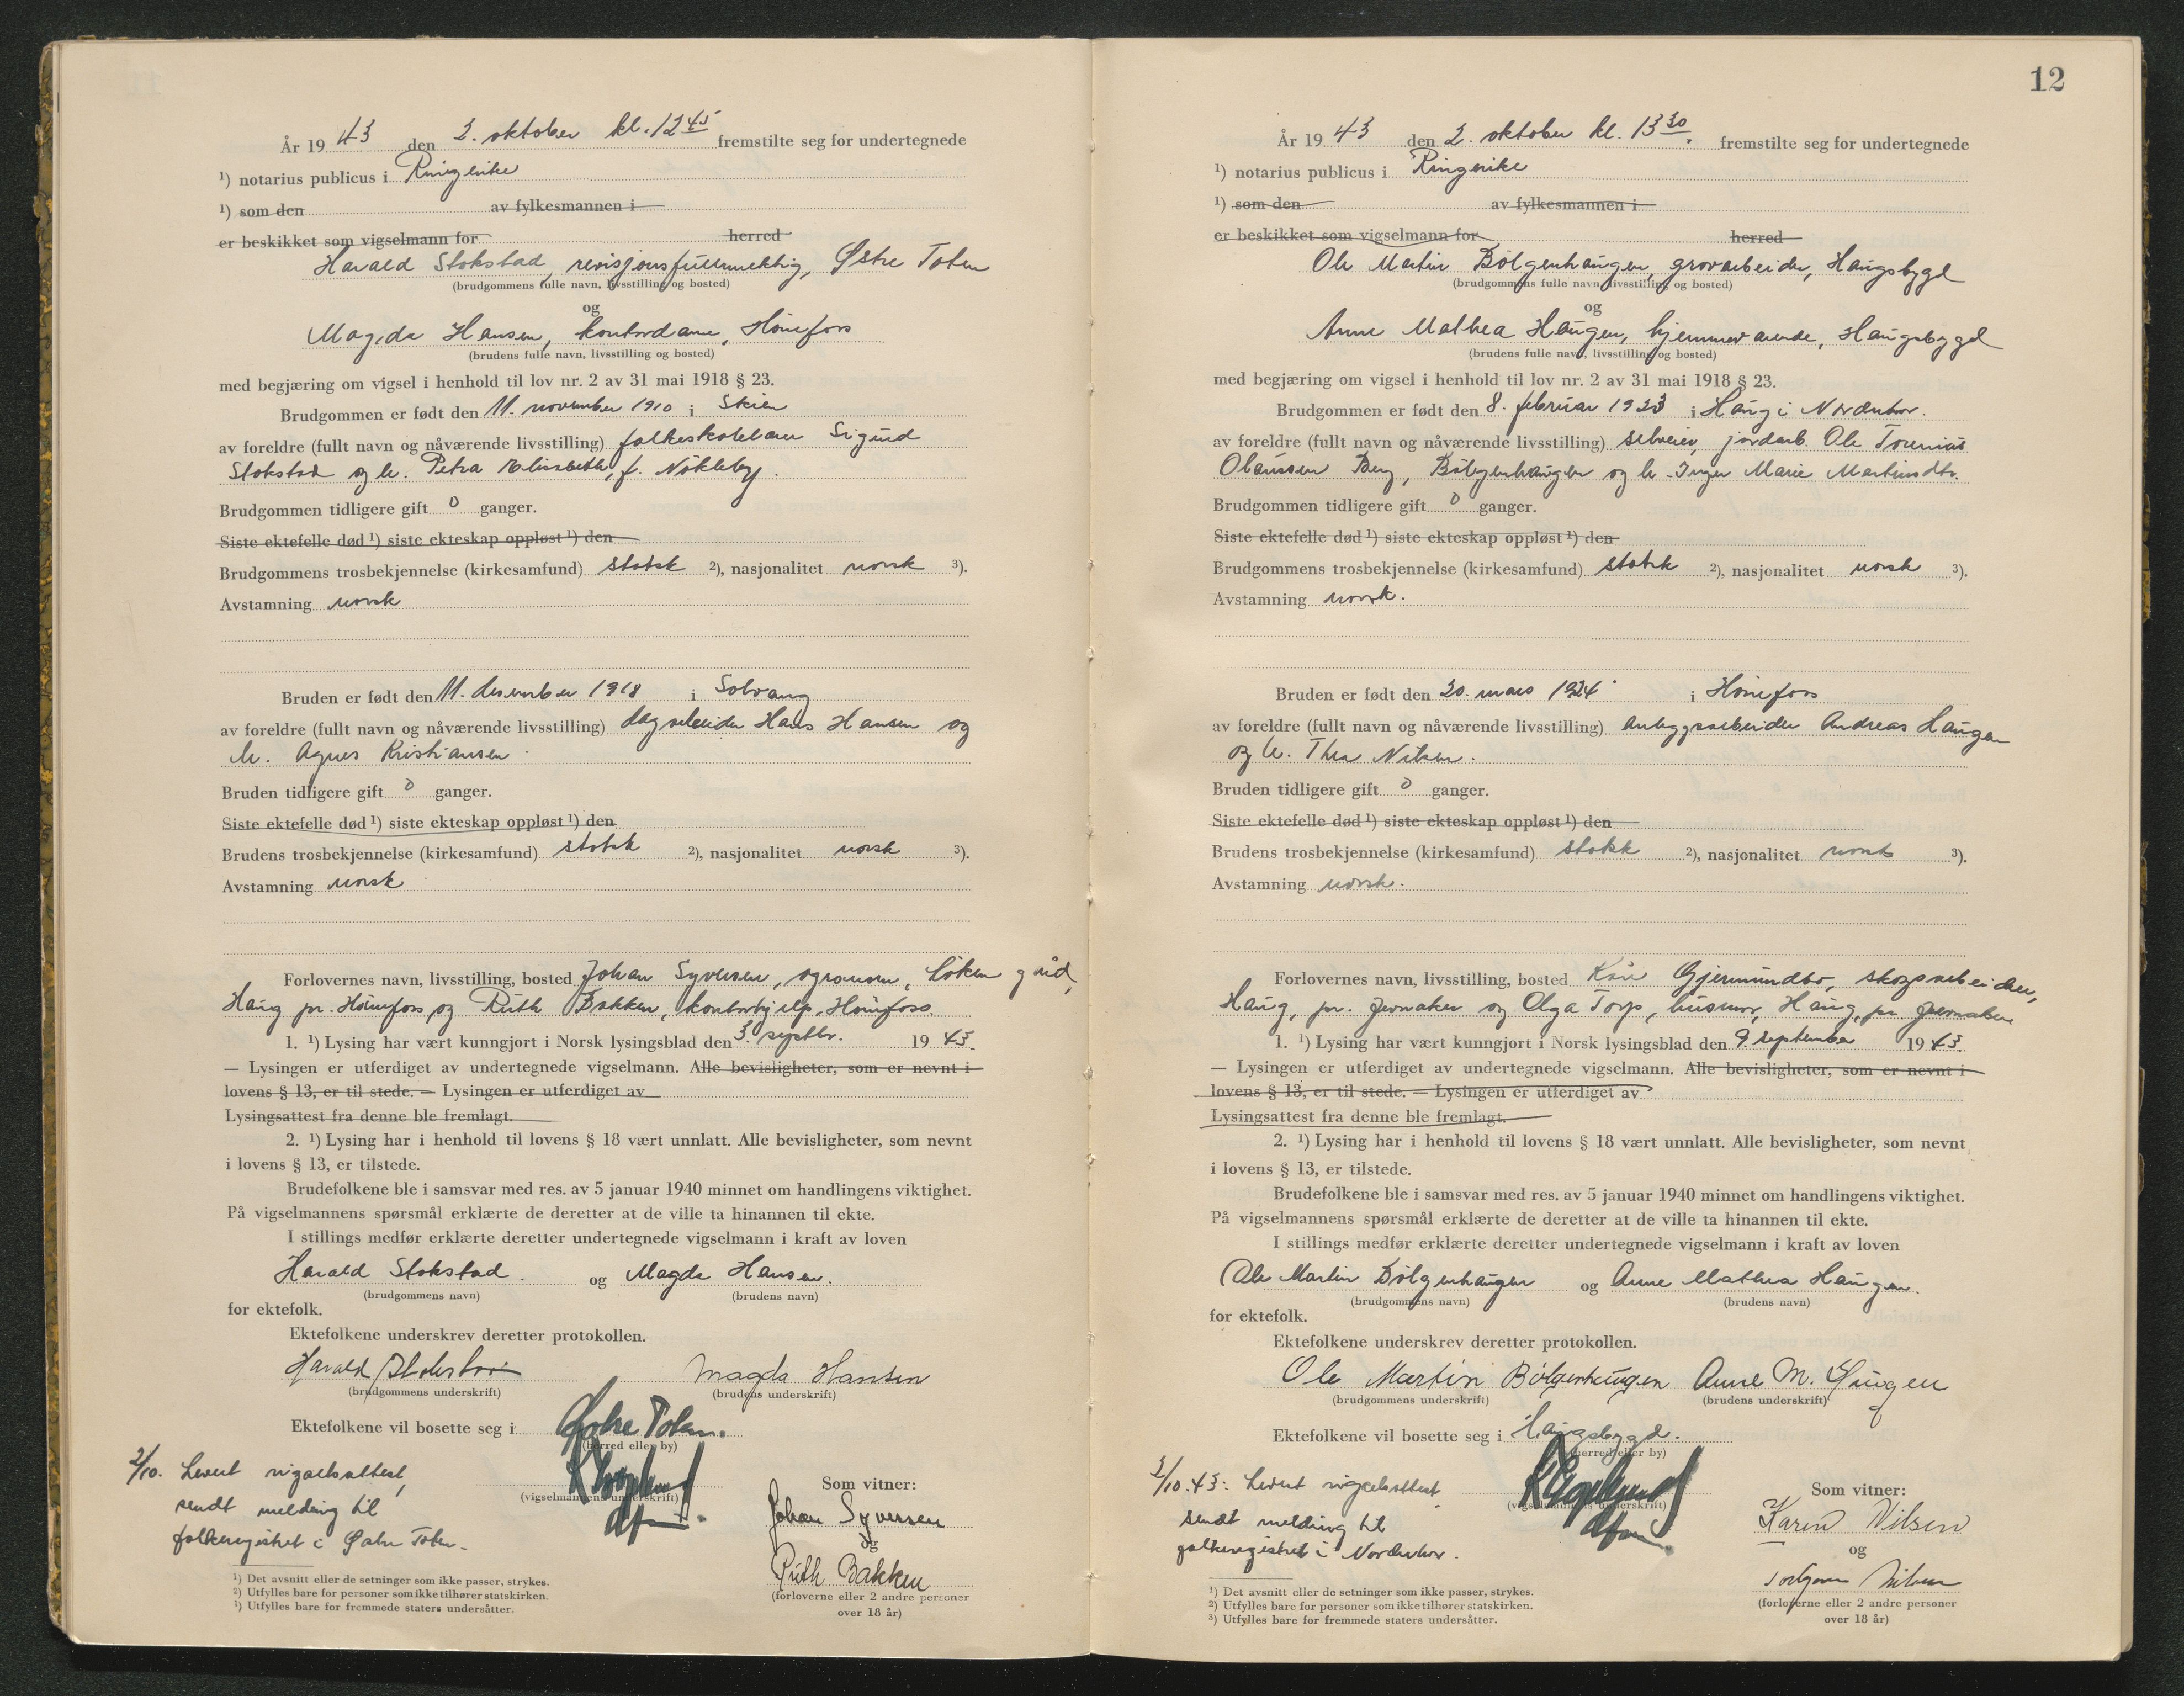 År 19 43 den 2. oktober kl. 12 45 fremstilte seg for undertegnede
¹) notarius publicus i Ringerike
¹) som den av fylkesmannen i
er beskikket som vigselmann for herred
Harald Stokstad, revisjonsfullmektig, Østre Toten
(brudgommens fulle navn, livsstilling og bosted)
og
Magda Hansen, kontordame, Hønefoss
(brudens fulle navn, livsstilling og bosted)
med begjæring om vigsel i henhold til lov nr. 2 av 31 mai 1918 § 23.
Brudgommen er født den 11. november 1910 i Skien
av foreldre (fullt navn og nåværende livsstilling) folkeskolelærer Sigurd
Stokstad og h. Petra Elisabeth, f. Nøkleby.
Brudgommen tidligere gift 0 ganger.
Siste ektefelle død ¹) siste ekteskap oppløst ¹) den
Brudgommens trosbekjennelse (kirkesamfund) statsk ²), nasjonalitet norsk ³).
Avstamning norsk
Bruden er født den 11. desember 1918 i Solvang
av foreldre (fullt navn og nåværende livsstilling) dagarbeider Hans Hansen og
h. Agnes Kristiansen
Bruden tidligere gift 0 ganger.
Siste ektefelle død ¹) siste ekteskap oppløst ¹) den
Brudens trosbekjennelse (kirkesamfund) statsk ²), nasjonalitet norsk ³).
Avstamning norsk
Forlovernes navn, livsstilling, bosted Johan Syversen, agronom, Løken gård,
Haug pr. Hønefoss og Ruth Bakken, kontorhjelp, Hønefoss
1. ¹) Lysing har vært kunngjort i Norsk lysingsblad den 3. septbr. 19 43.
— Lysingen er utferdiget av undertegnede vigselmann. Alle bevisligheter, som er nevnt i
lovens § 13, er til stede. — Lysingen er utferdiget av
Lysingsattest fra denne ble fremlagt.
2. ¹) Lysing har i henhold til lovens § 18 vært unnlatt. Alle bevisligheter, som nevnt
i lovens § 13, er tilstede.
Brudefolkene ble i samsvar med res. av 5 januar 1940 minnet om handlingens viktighet.
På vigselmannens spørsmål erklærte de deretter at de ville ta hinannen til ekte.
I stillings medfør erklærte deretter undertegnede vigselmann i kraft av loven
Harald Stokstad. og Magda Hansen.
(brudgommens navn) (brudens navn)
for ektefolk.
Ektefolkene underskrev deretter protokollen.
Harald Stokstad Magda Hansen
(brudgommens underskrift) (brudens underskrift)
Ektefolkene vil bosette seg i Østre Toten.
(herred eller by)
2/10. Levert vigselsattest,
sendt melding til
folkeregistret i Østre Toten.
(vigselmannens underskrift)
Som vitner:
Johan Syversen
og
Ruth Bakken
(forloverne eller 2 andre personer
over 18 år)
¹) Det avsnitt eller de setninger som ikke passer, strykes.
²) Utfylles bare for personer som ikke tilhører statskirken.
³) Utfylles bare for fremmede staters undersåtter.
12
År 19 43 den 2. oktober kl. 13 30. fremstilte seg for undertegnede
¹) notarius publicus i Ringerike
¹) som den av fylkesmannen i
er beskikket som vigselmann for herred
Ole Martin Bølgenhaugen, grovarbeider, Haugsbygd
(brudgommens fulle navn, livsstilling og bosted)
og
Anne Mathea Haugen, hjemmeværende, Haugsbygd
(brudens fulle navn, livsstilling og bosted)
med begjæring om vigsel i henhold til lov nr. 2 av 31 mai 1918 § 23.
Brudgommen er født den 8. februar 1923 i Haug i Norderhov.
av foreldre (fullt navn og nåværende livsstilling) selveier, jordarb. Ole Torenius
Olaussen Berg, Bølgenhaugen og h. Inger Marie Martinsdtr.
Brudgommen tidligere gift 0 ganger.
Siste ektefelle død ¹) siste ekteskap oppløst ¹) den
Brudgommens trosbekjennelse (kirkesamfund) statsk ²), nasjonalitet norsk ³).
Avstamning norsk.
Bruden er født den 20. mars 1924 i Hønefoss
av foreldre (fullt navn og nåværende livsstilling) anleggsarbeider Andreas Haugen
og h. Thea Nilsen.
Bruden tidligere gift 0 ganger.
Siste ektefelle død ¹) siste ekteskap oppløst ¹) den
Brudens trosbekjennelse (kirkesamfund) statsk ²), nasjonalitet norsk ³).
Avstamning norsk.
Forlovernes navn, livsstilling, bosted Kåre Gjermundbo, skogsarbeider,
Haug, pr. Jevnaker og Olga Torp, husmor, Haug, pr. Jevnaker
1. ¹) Lysing har vært kunngjort i Norsk lysingsblad den 9. september 19 43.
— Lysingen er utferdiget av undertegnede vigselmann. Alle bevisligheter, som er nevnt i
lovens § 13, er til stede. — Lysingen er utferdiget av
Lysingsattest fra denne ble fremlagt.
2. ¹) Lysing har i henhold til lovens § 18 vært unnlatt. Alle bevisligheter, som nevnt
i lovens § 13, er tilstede.
Brudefolkene ble i samsvar med res. av 5 januar 1940 minnet om handlingens viktighet.
På vigselmannens spørsmål erklærte de deretter at de ville ta hinannen til ekte.
I stillings medfør erklærte deretter undertegnede vigselmann i kraft av loven
Ole Martin Bølgenhaugen og Anne Mathea Haugen.
(brudgommens navn) (brudens navn)
for ektefolk.
Ektefolkene underskrev deretter protokollen.
Ole Martin Bølgenhaugen Anne M. Haugen
(brudgommens underskrift) (brudens underskrift)
Ektefolkene vil bosette seg i Haugsbygd.
(herred eller by)
2/10.43: Levert vigselsattest,
sendt melding til
folkeregistret i Norderhov.
(vigselmannens underskrift)
Som vitner:
Karen Nilsen
og
Torbjørn Nilsen
(forloverne eller 2 andre personer
over 18 år)
¹) Det avsnitt eller de setninger som ikke passer, strykes.
²) Utfylles bare for personer som ikke tilhører statskirken.
³) Utfylles bare for fremmede staters undersåtter.